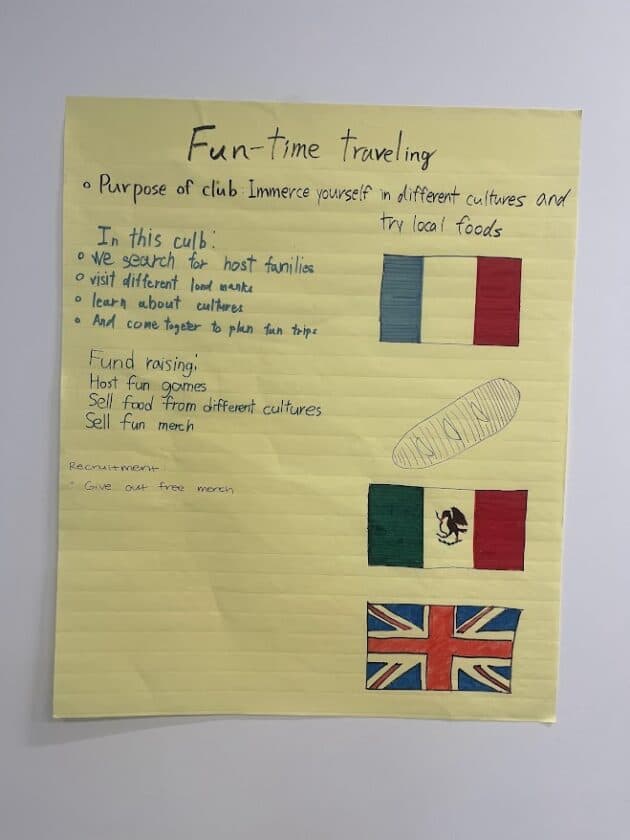 Fun-time traveling
• Purpose of club: Immerce yourself in different cultures and
try local foods
In this culb:
• We search for host families
• visit different land marks
• learn about cultures
• And come togeter to plan fun trips
Fund raising:
Host fun games
Sell food from different cultures
Sell fun merch
Recruitment
• Give out free merch